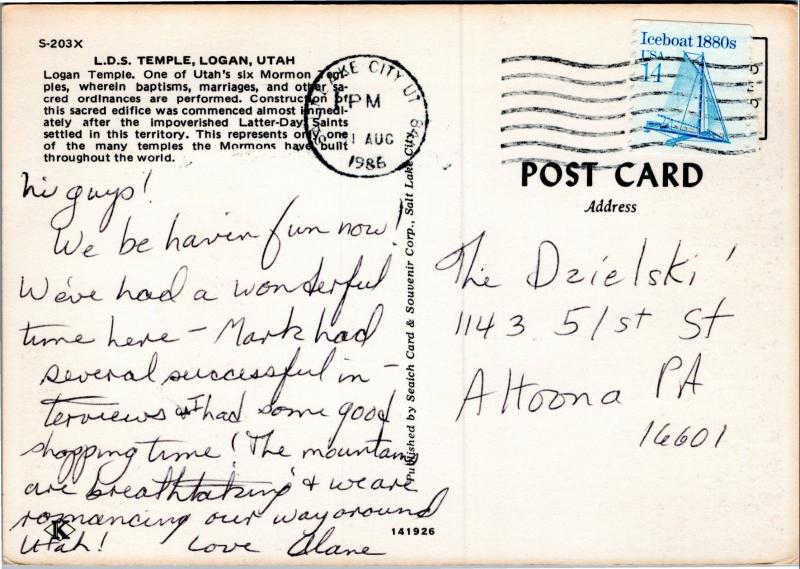 S-203X
L.D.S. TEMPLE, LOGAN, UTAH
Logan Temple. One of Utah's six Mormon Tem-
ples, wherein baptisms, marriages, and other sa-
cred ordinances are performed. Construction of
this sacred edifice was commenced almost immedi-
ately after the impoverished Latter-Day Saints
settled in this territory. This represents only one
of the many temples the Mormons have built
throughout the world.
hi guys!
We be havin fun now!
We've had a wonderful
time here - Mark had
several successful in-
terviews & I had some good
shopping time! The mountains
are breathtaking & we are
romancing our way around
Utah! Love Alane
K
141926
Published by Seaich Card & Souvenir Corp., Salt Lake City,
LAKE CITY UT
PM
1 AUG
1986
Iceboat 1880s
USA
14
POST CARD
Address
The Dzielski'
1143 51st St
Altoona PA
16601